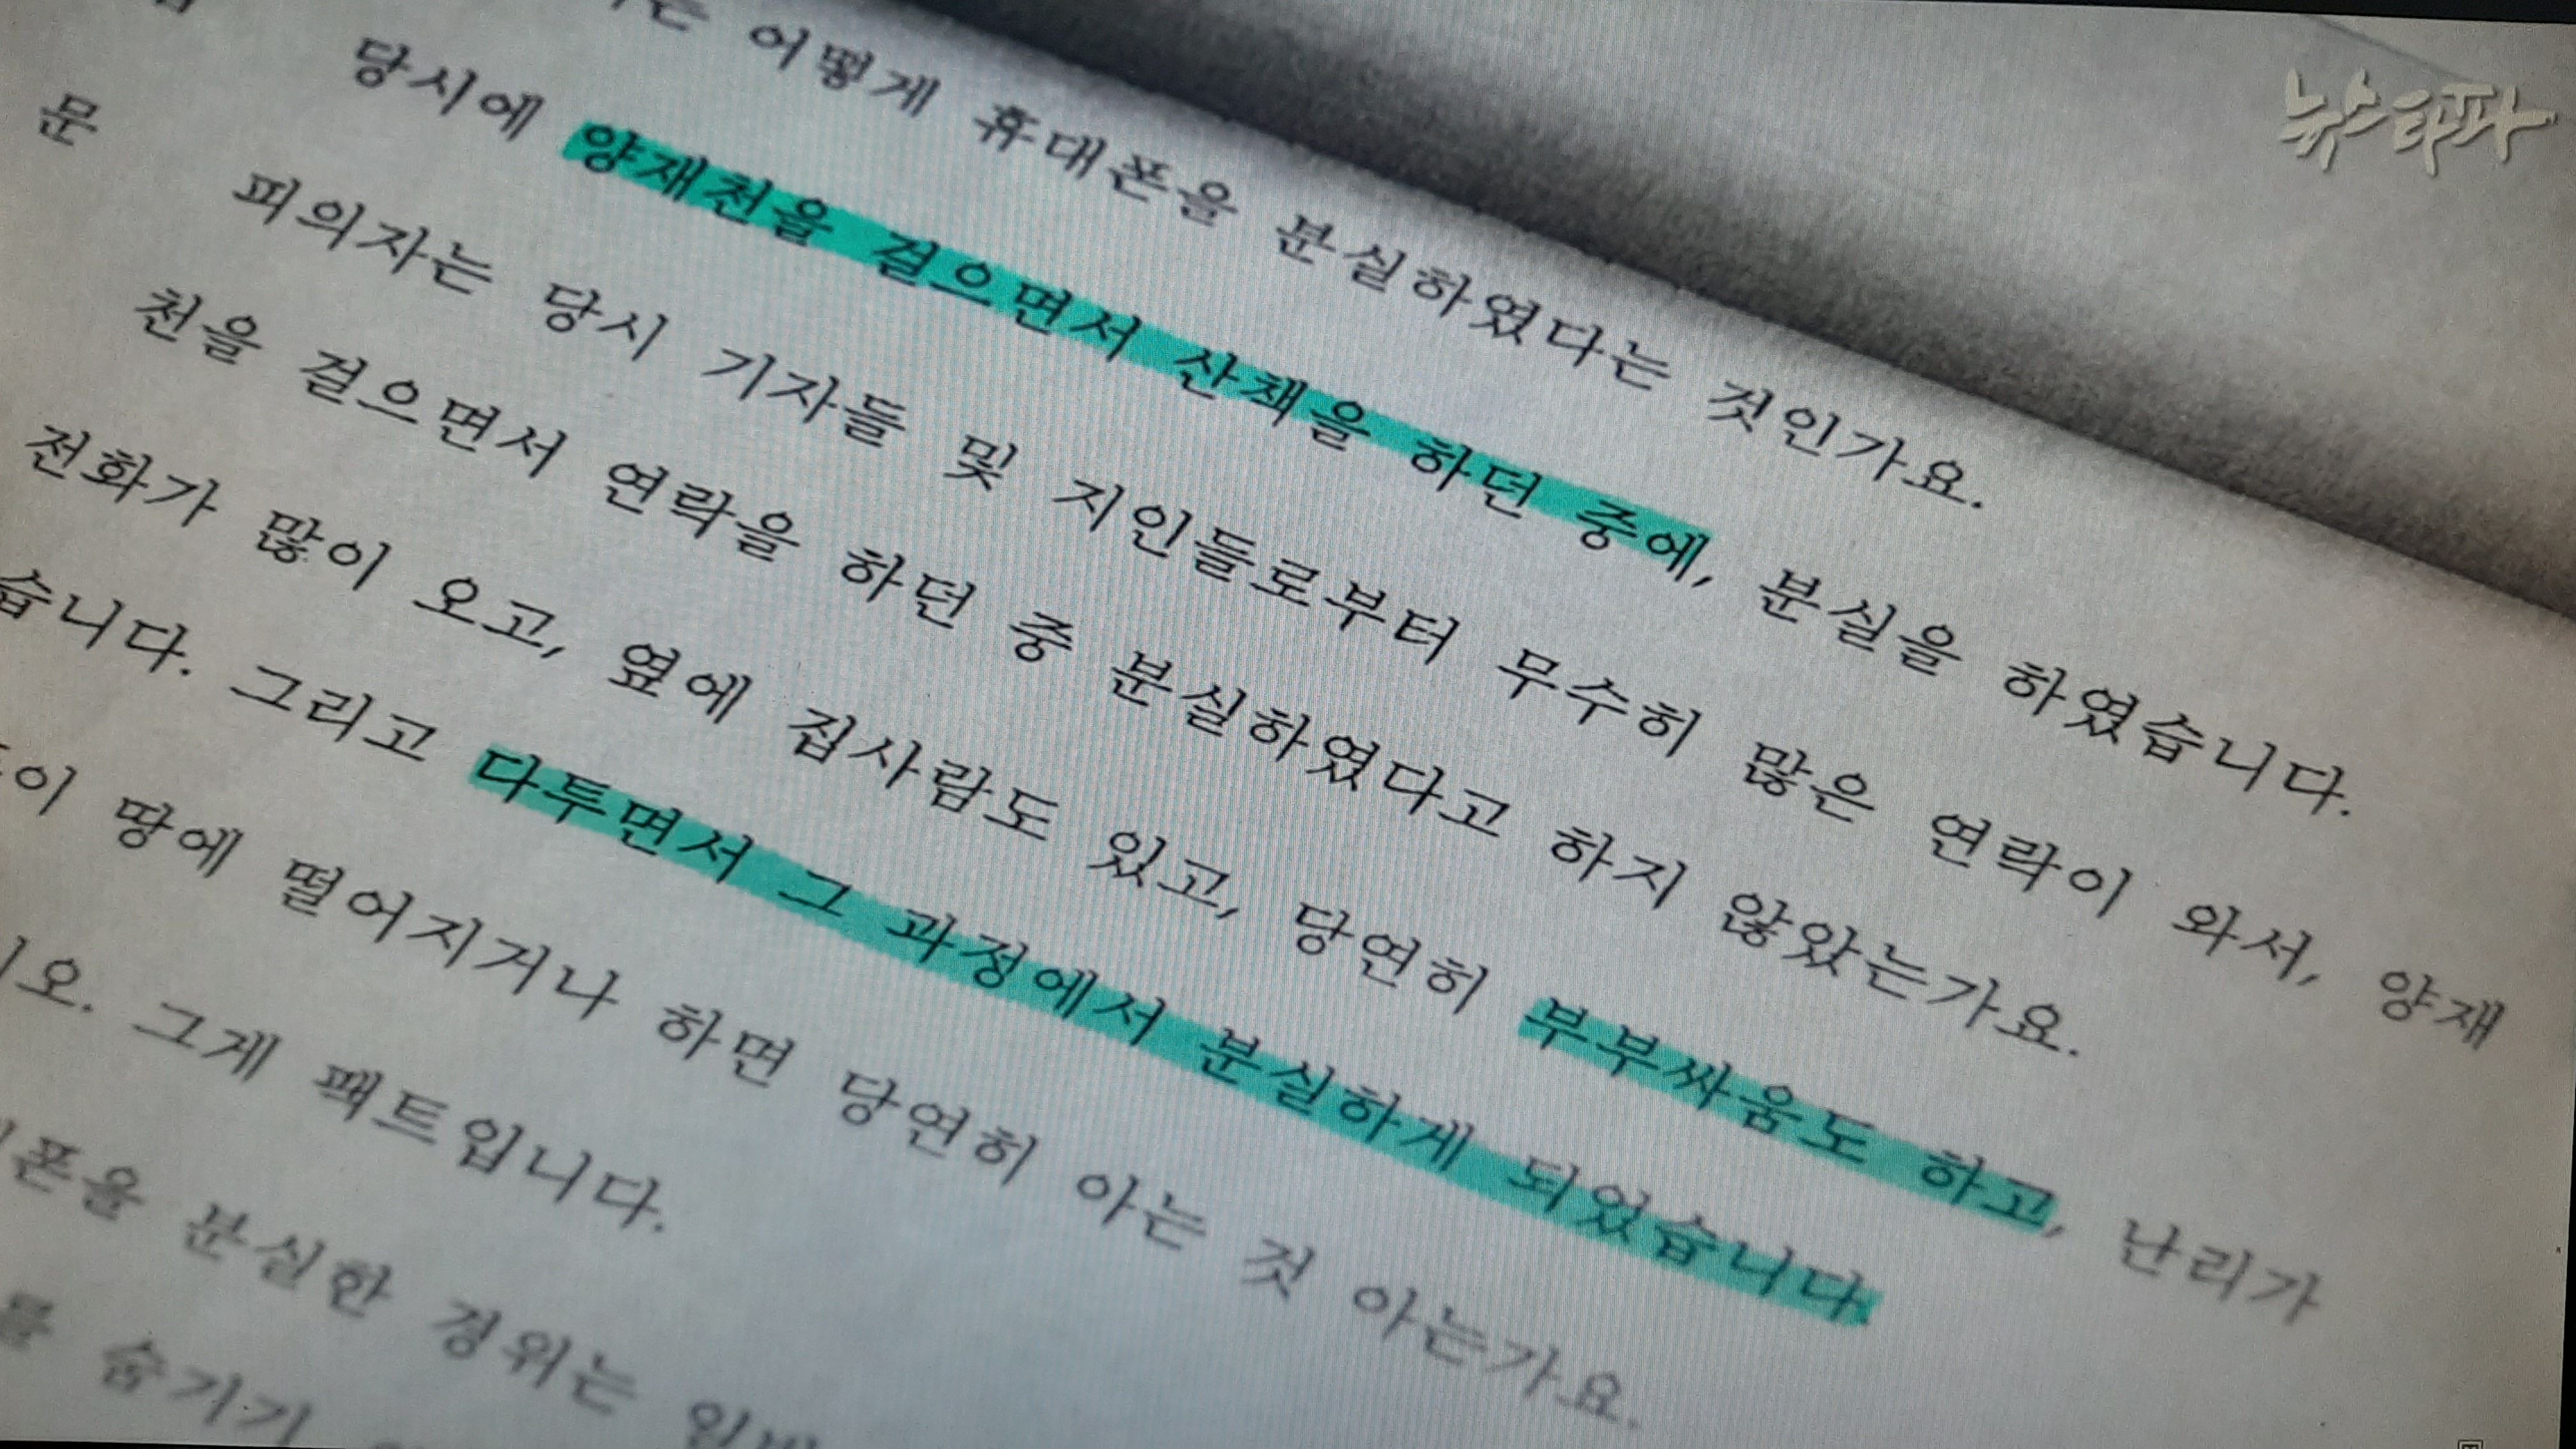 뉴스타파
는 어떻게 휴대폰을 분실하였다는 것인가요.
당시에 양재천을 걸으면서 산책을 하던 중에, 분실을 하였습니다.
문 피의자는 당시 기자들 및 지인들로부터 무수히 많은 연락이 와서, 양재
천을 걸으면서 연락을 하던 중 분실하였다고 하지 않았는가요.
전화가 많이 오고, 옆에 집사람도 있고, 당연히 부부싸움도 하고, 난리가
습니다. 그리고 다투면서 그 과정에서 분실하게 되었습니다.
이 땅에 떨어지거나 하면 당연히 아는 것 아는가요.
오. 그게 팩트입니다.
폰을 분실한 경위는
를 숨기기